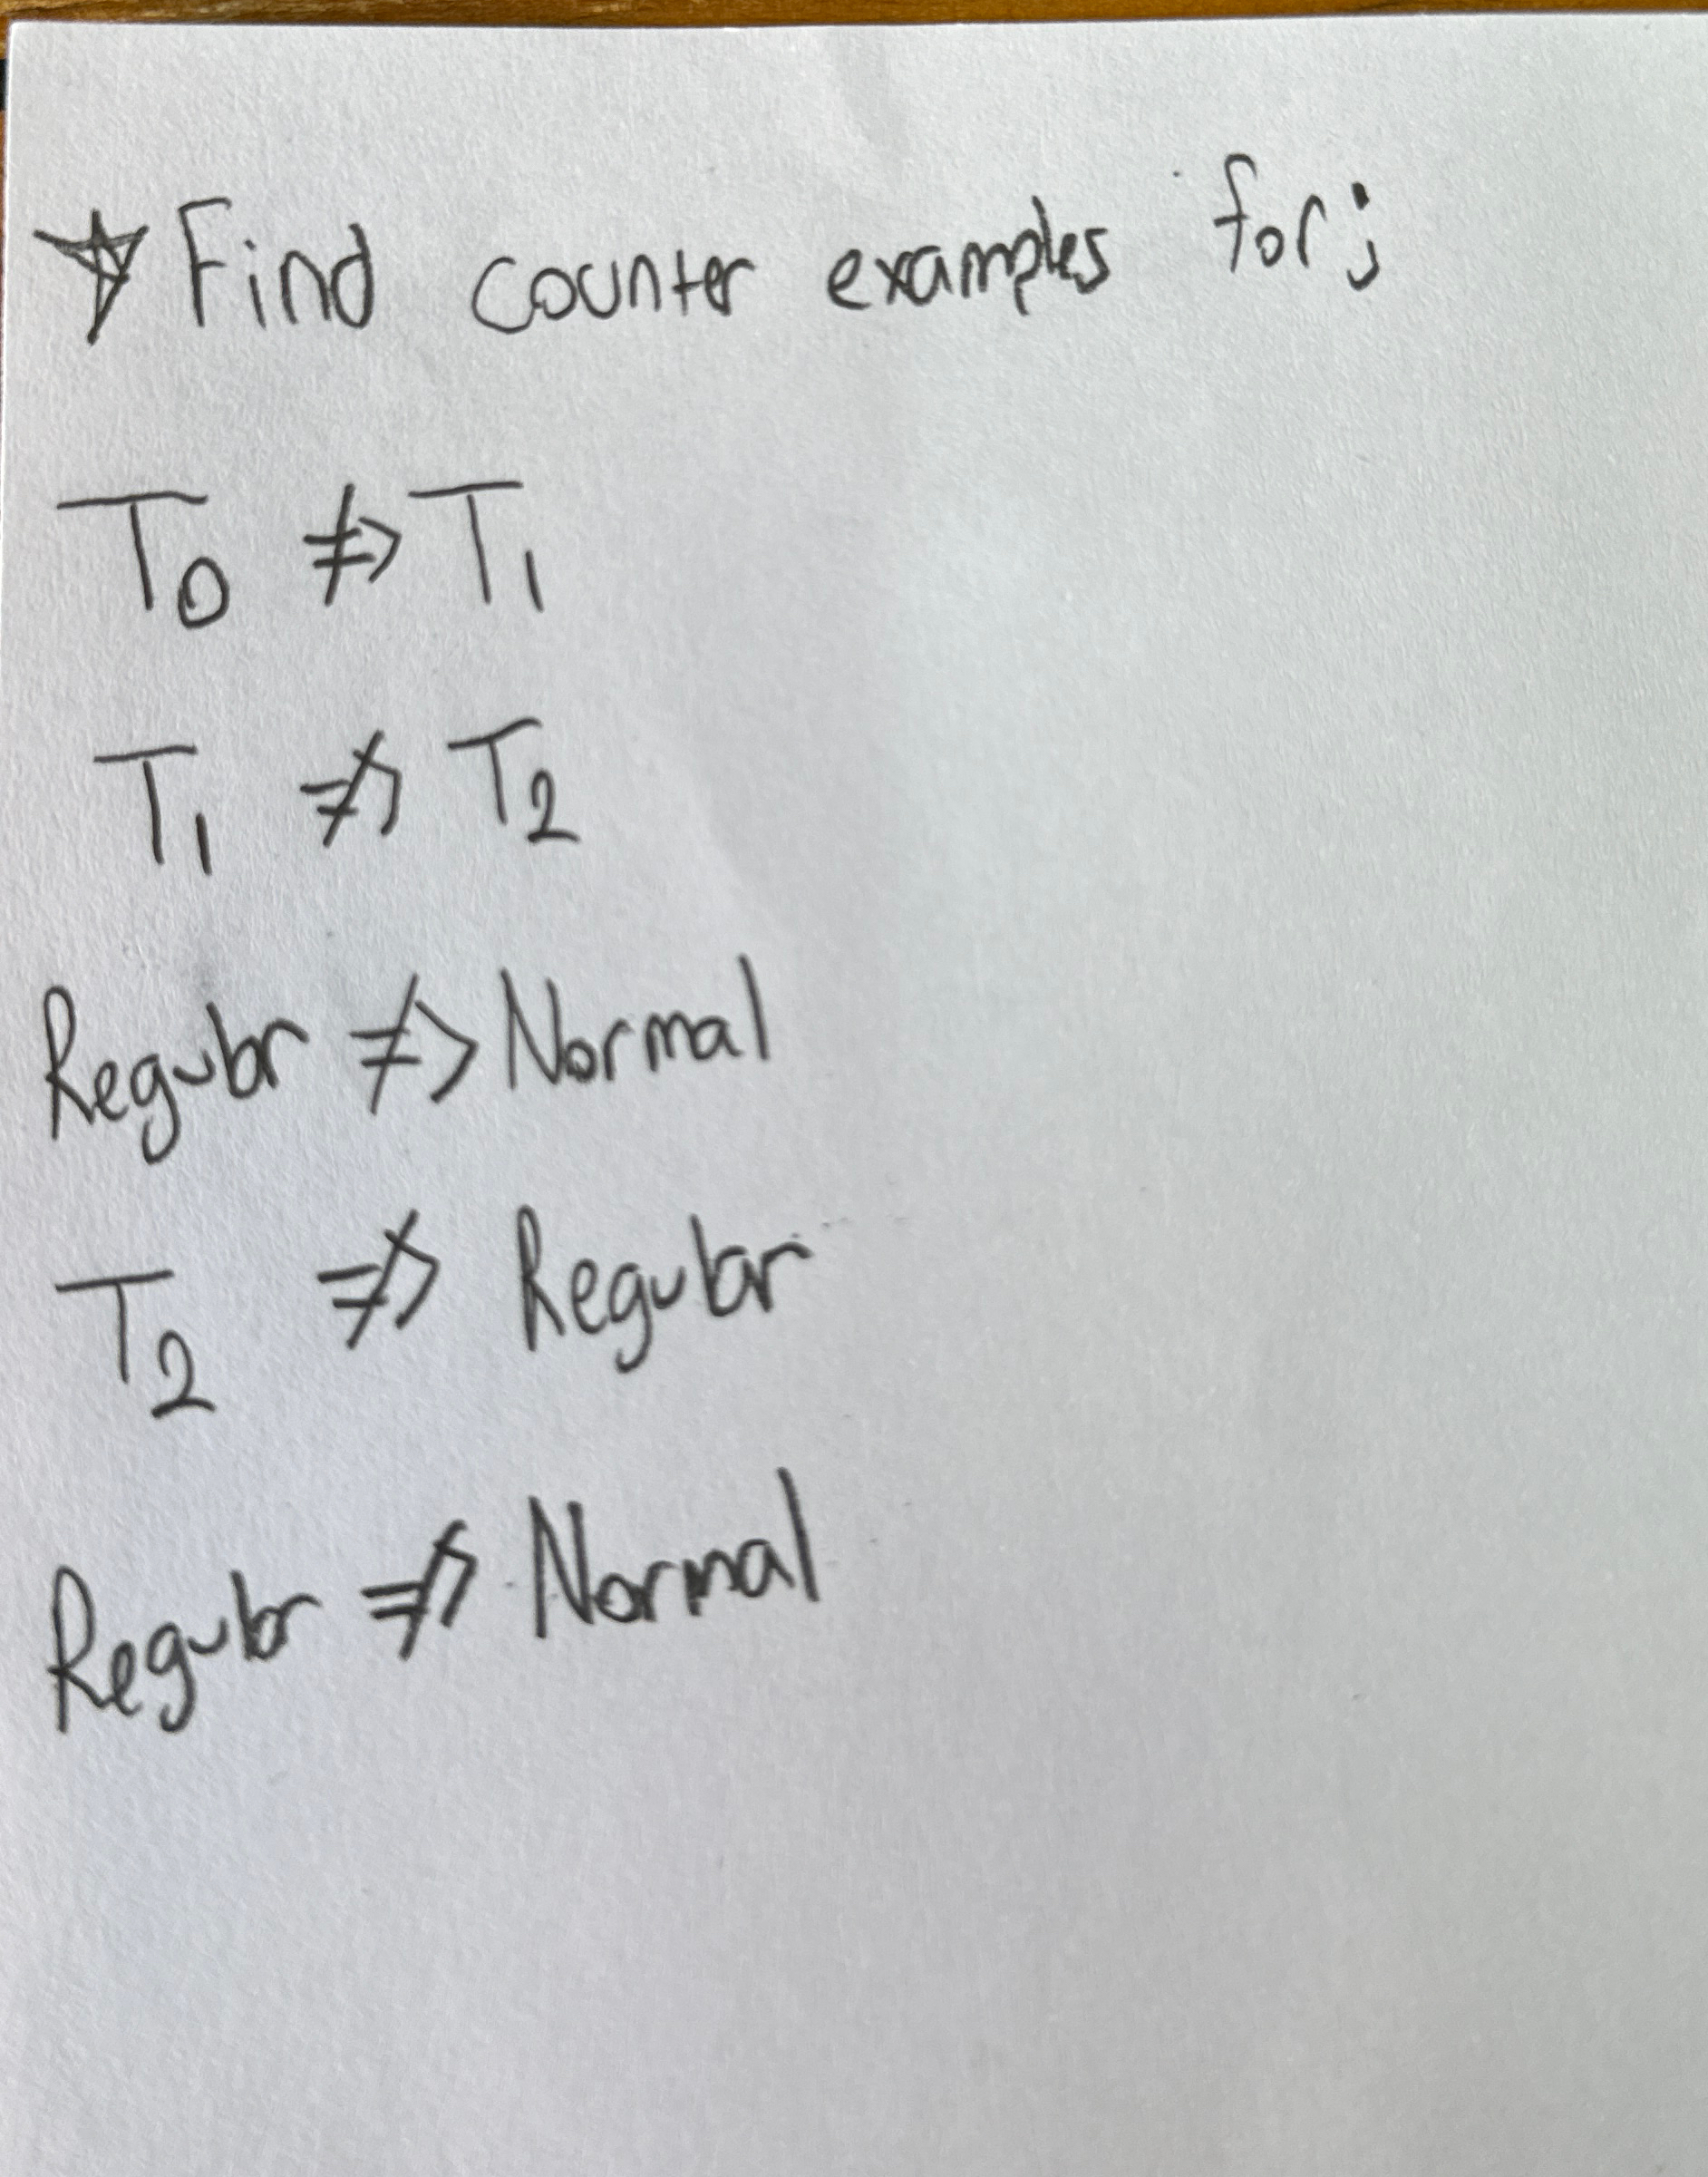 ☆ Find counter examples for;
T₀ ⇏ T₁
T₁ ⇏ T₂
Regular ⇏ Normal
T₂ ⇏ Regular
Regular ⇏ Normal